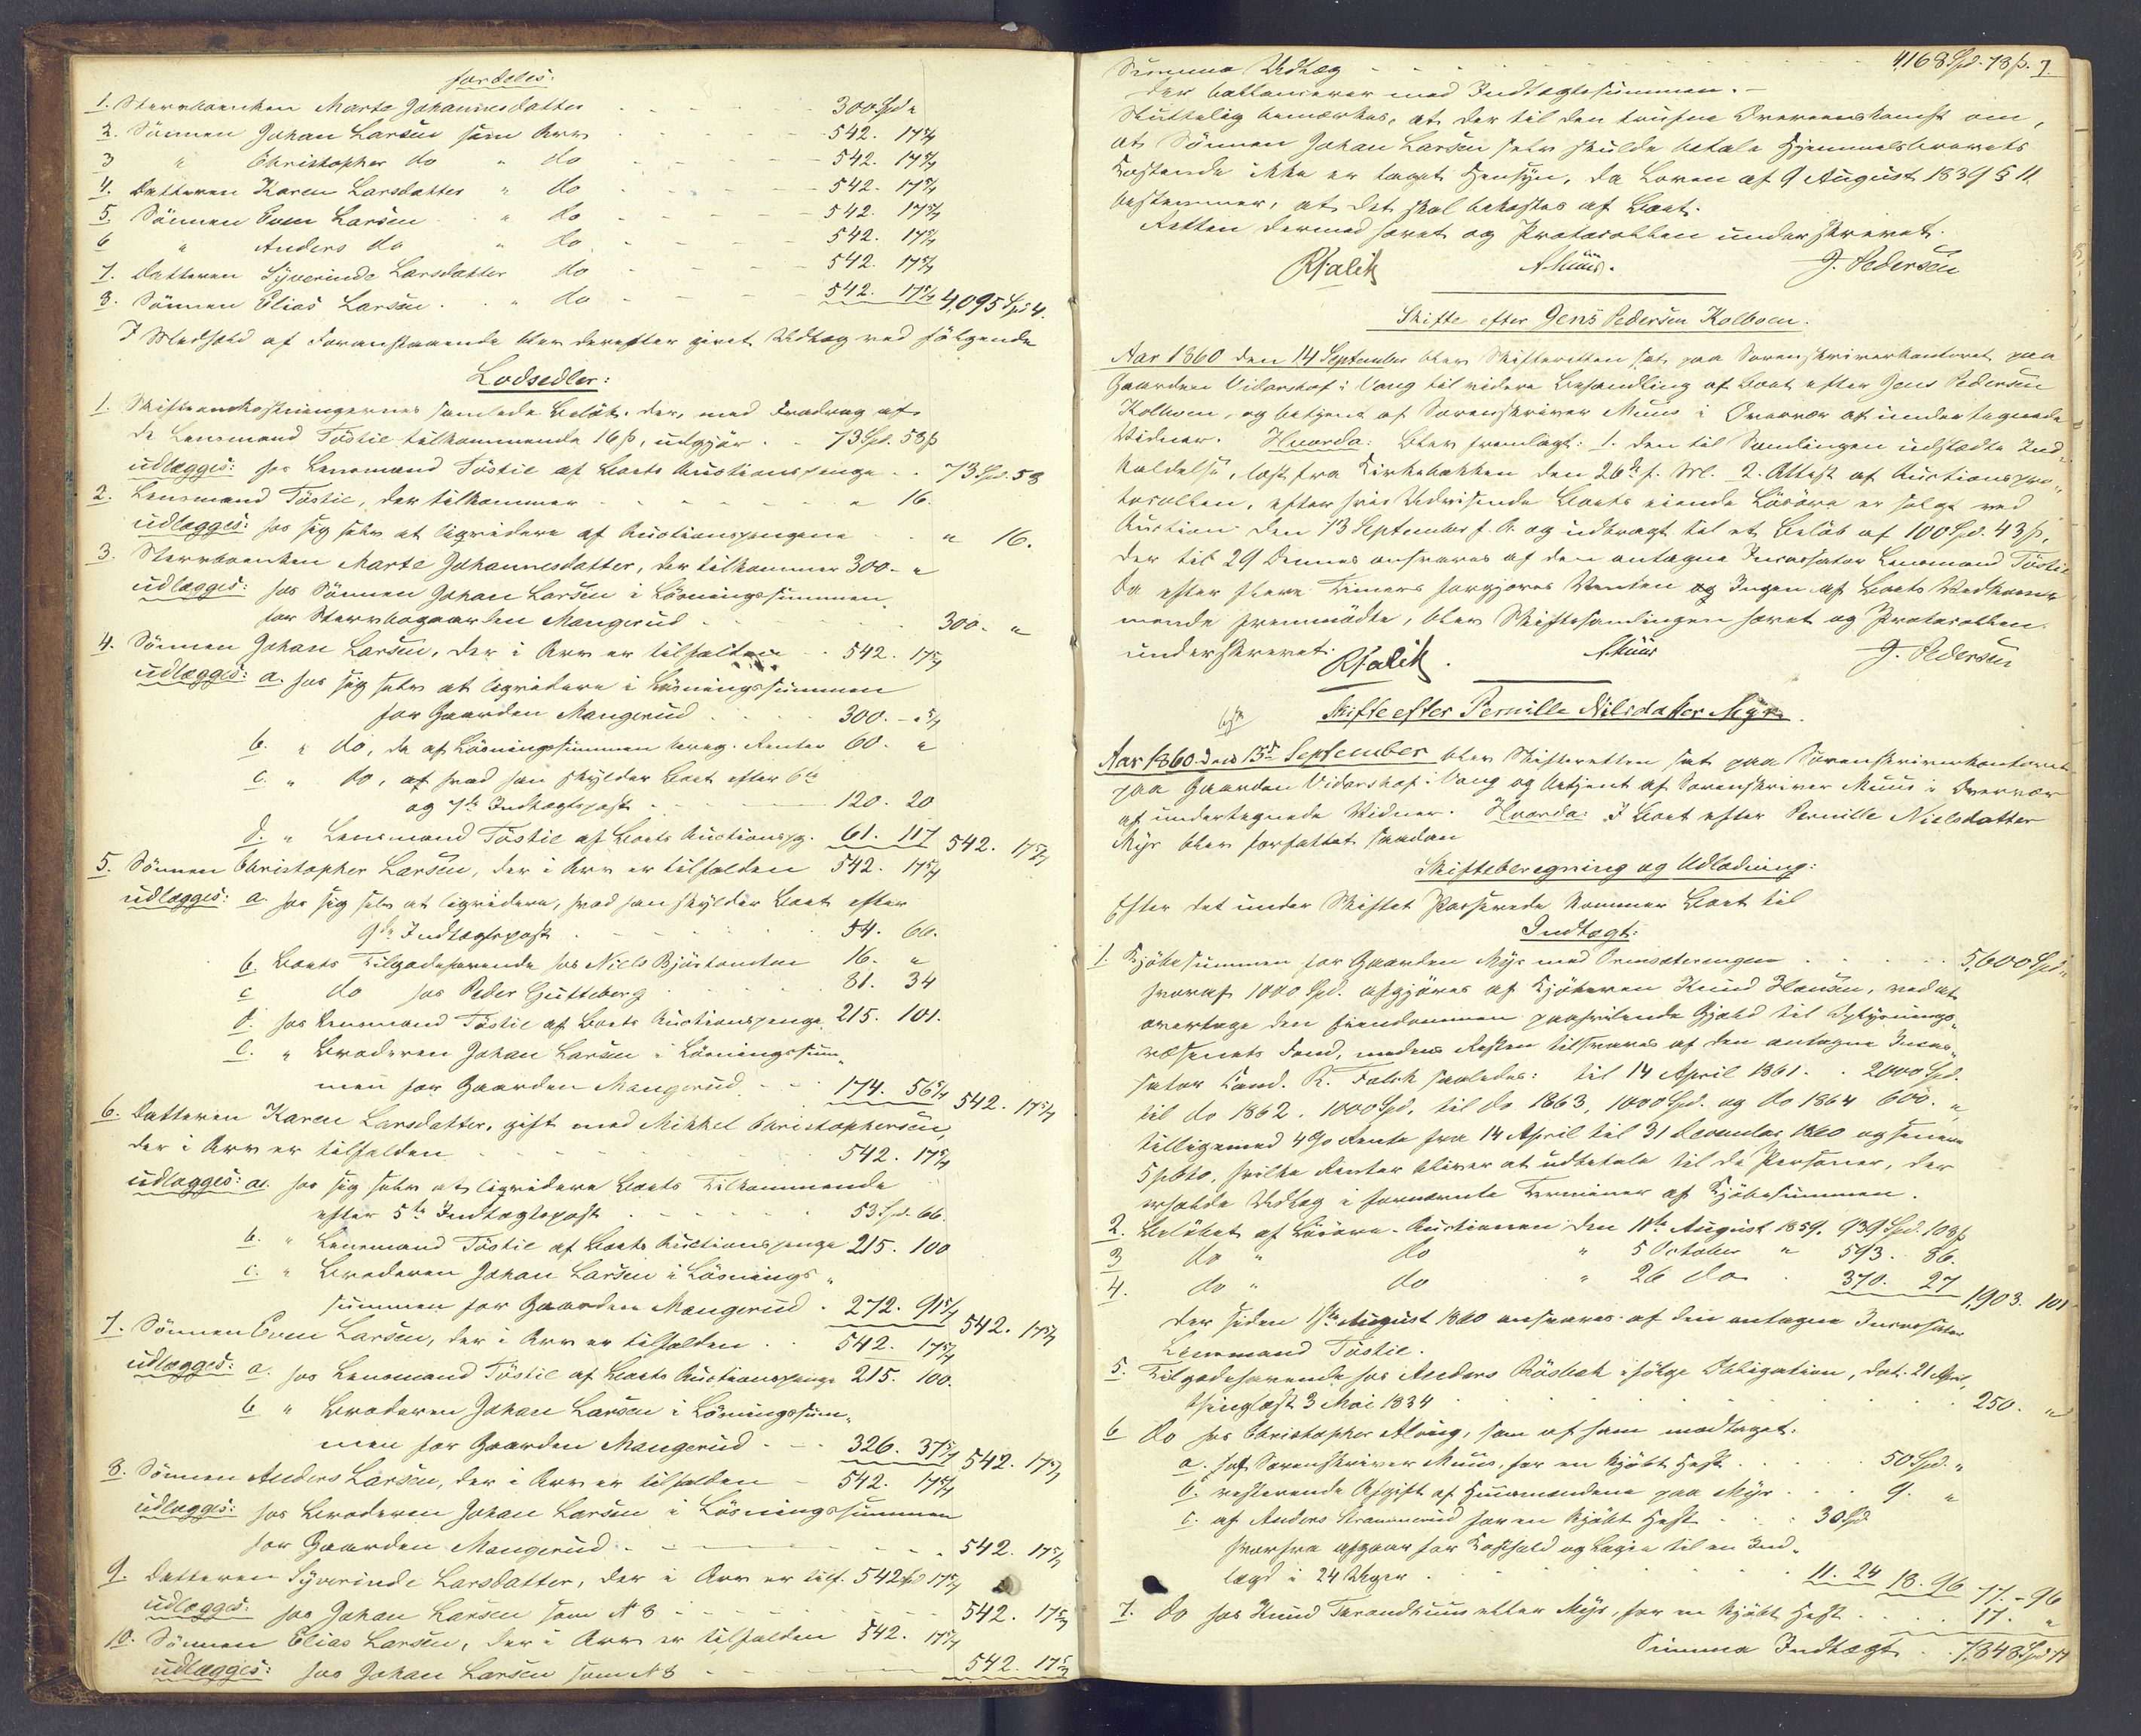 fordeles:
1. Stervboenken Marte Johannesdatter 300 Spd "
2. Sönnen Johan Larsen som Arv 542. 17 5/7
3 " Christopher do " do 542. 17 5/7
4. Datteren Karen Larsdatter " do 542. 17 5/7
5. Sönnen Even Larsen " do 542. 17 5/7
6 " Anders do " do 542. 17 5/7
7. Datteren Syverinde Larsdatter do 542. 17 5/7
8. Sönnen Elias Larsen " do 542. 17 5/7 4,095 Spd 4.
I Medhold af Foranstaaende blev derefter givet Udlæg ved følgende
Lodsedler:
1. Skifteomkostningernes samlede Beløb, der, med Fradrag af
de Lensmand Töstie tilkommende 16 ß, udgjør 73 Spd. 58 ß
udlægges: hos Lensmand Töstie af Boets Auctionspenge 73 Spd. 58
2. Lensmand Töstie, der tilkommer " 16.
udlægges: hos sig selv at liqvidere af Auctionspengene " 16.
3. Stervboenken Marte Johannesdatter, der tilkommer 300. "
udlægges: hos Sönnen Johan Larsen i Løsningssummen
for Stervbogaarden Mangerud 300. "
4. Sönnen Johan Larsen, der i Arv er tilfalden 542. 17 5/7
udlægges: a. hos sig selv at liqvidere i Løsningssummen
for Gaarden Mangerud 300. - " 5/7
b. " do, de af Løsningssummen bereg. Renter 60. "
c. " do, af hvad han skylder Boet efter 6te
og 7de Indtægtspost 120. 20
d. " Lensmand Töstie af Boets Auctionspg. 61. 117 542. 17 5/7
5. Sönnen Christopher Larsen, der i Arv er tilfalden 542. 17 5/7
udlægges: a. hos sig selv at liqvidere, hvad han skylder Boet efter
9de Indtægtspost 54. 66.
b. Boets Tilgodehavende hos Niels 16. "
c do hos Peder Gutteberg 81. 34
d. hos Lensmand Töstie af Boets Auctionspenge 215. 101.
e. " Broderen Johan Larsen i Løsningssum-
men for Gaarden Mangerud 174. 56 5/7 542. 17 5/7
6. Datteren Karen Larsdatter, gift med Mikkel Christophersen,
der i Arv er tilfalden 542. 17 5/7
udlægges: a. hos sig selv at liqvidere Boets Tilkommende
efter 5te Indtægtspost 53 Spd. 66.
b. " Lensmand Töstie af Boets Auctionspenge 215. 100
c. " Broderen Johan Larsen i Løsnings-
summen for Gaarden Mangerud 272. 91 5/7 542. 17 5/7
7. Sönnen Even Larsen, der i Arv er tilfalden 542. 17 5/7
udlægges: a. hos Lensmand Töstie af Boets Auctionspenge 215. 100.
b " Broderen Johan Larsen i Løsningssum-
men for Gaarden Mangerud 326. 37 5/7 542. 17 5/7
8. Sönnen Anders Larsen, der i Arv er tilfalden 542. 17 5/7
udlægges: hos Broderen Johan Larsen i Løsningssummen
for Gaarden Mangerud 542. 17 5/7
9. Datteren Syverinde Larsdatter, der i Arv er tilf. 542 Spd 17 5/7
udlægges: hos Johan Larsen som N 8 542. 17 5/7
10. Sönnen Elias Larsen, der i Arv er tilfalden 542. 17 5/7
udlægges: hos Johan Larsen som N 8 542. 17 5/7
7.
Summa Udlæg 4,168 Spd. 78 ß.
der ballancerer med Indtægtssummen. -
Sluttelig bemærkes, at der til den trufne Overeenskomst om,
at Sönnen Johan Larsen selv skulde betale Hjemmelsbrevets
Kostende ikke er taget Hensyn, da Loven af 9 August 1839 § 11
bestemmer, at det skal bekostes af Boet.
Retten dermed hævet og Protocollen underskrevet.
RFalck Muus. J. Pedersen
Skifte efter Jens Pedersen Kolboen.
Aar 1860 den 14 September blev Skifteretten sat paa Sorenskriverkontoret paa
Gaarden Vidarshof i Vang til videre Behandling af Boet efter Jens Pedersen
Kolboen, og betjent af Sorenskriver Muus i Overvær af undertegnede
Vidner. Hvorda: blev fremlagt: 1. den til Samlingen udstædte Ind-
kaldelse, læst fra Kirkebakken den 26de f. M. 2. Attest af Auctionspro-
tocollen, efter hvis Udvisende Boets eiende Løsøre er solgt ved
Auction den 13 September f. A. og udbragt til et Beløb af 100 Spd. 43 ß,
der til 29 Dennes ansvares af den antagne Incassator Lensmand Töstie
Da efter flere Timers forgjæves Venten og Ingen af Boets Vedkom-
mende fremmødte, blev Skiftesamlingen hævet og Protocollen
underskrevet. RFalck. Muus J. Pedersen
Skifte efter Pernille Nilsdatter Myr.
Aar 1860 den 15de September blev Skifteretten sat paa Sorenskriverkontoret
paa Gaarden Vidarshof i Vang og betjent af Sorenskriver Muus i Overvær
af undertegnede Vidner. Hvorda: I Boet efter Pernille Nielsdatter
Myr blev forfattet saadan
Skifteberegning og Udlodning:
Efter det under Skiftet Passerede kommer Boet til
Indtægt:
1. Kjøbesummen for Gaarden Myr med Ormsæterengen 5,600 Spd "
hvoraf 1000 Spd. afgjøres af Kjøberen Knud Hansen, ved at
overtage den Eiendommen paahvilende Gjæld til Oplysnings-
væsenets Fond, medens Resten tilsvares af den antagne Incas-
sator Cand. R. Falck saaledes: til 14 April 1861. 2000 Spd.
til do 1862. 1000 Spd, til do 1863, 1000 Spd. og do 1864 600. "
tilligemed 4 % Rente fra 14 April til 31 December 1860 og senere
5 pCto, hvilke Renter bliver at udbetale til de Personer, der
erholde Udlæg i fornævnte Terminer af Kjøbesummen.
2. Beløbet af Løsøre-Auctionen den 11te August 1859. 939 Spd. 108 ß
3 do " do " 5 October " 593. 86.
4. do " do " 26 do 370. 27 1,903. 101
der siden 1ste August 1860 ansvares af den antagne Incassator
Lensmand Töstie.
5. Tilgodehavende hos Anders Røsbak ifølge Obligation, dat. 21 April,
thinglæst 3 Mai 1834 250. "
6 do hos Christopher Alvig, som af ham modtaget.
a. hos Sorenskriver Muus, for en kjøbt Hest 50 Spd. "
b. resterende Afgift af Huusmændene paa Myr 9. "
c. af Anders Strammerud for en kjøbt Hest 30 Spd
hvorfra afgaar for Kosthold og Legen til en Ind-
lagt i 24 Uger 11. 24 18. 96 77. - 96
7. do hos Knud eller Myr, for en kjøbt Hest 17. "
Summa Indtægt 7,848 Spd 77